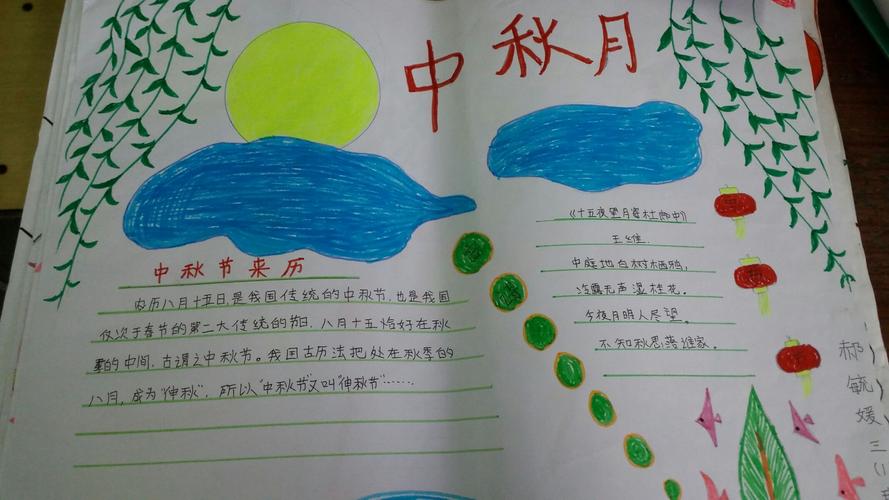 中秋月
中秋节来历
农历八月十五日,是我国传统的中秋节,也是我国
仅次于春节的第二大传统的节日.八月十五恰好在秋
季的中间,古谓之中秋节。我国古历法把处在秋季的
八月,成为"仲秋",所以"中秋节"又叫"仲秋节"……
《十五夜望月寄杜郎中》
王维.
中庭地白树栖鸦,
冷露无声湿桂花。
今夜月明人尽望。
不知秋思落谁家。
郝
毓
媛
三
(1